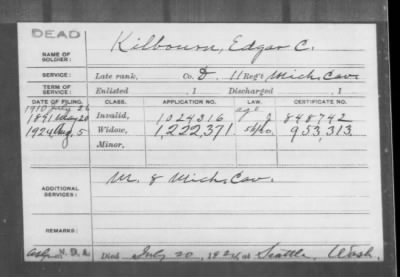 DEAD
NAME OF SOLDIER: Kilbourn, Edgar C.
SERVICE: Late rank, Co. D. 11 Reg't Mich. Cav.
TERM OF SERVICE: Enlisted , 1 Discharged , 1
DATE OF FILING. CLASS. APPLICATION NO. LAW. CERTIFICATE NO.
1910 July 26 age
1891 May 20 Invalid, 1024316 J 848742
1924 Aug. 5 Widow, 1,222,371 953,313
Minor,
ADDITIONAL SERVICES: M. 8 Mich. Cav.
REMARKS:
N.D.A. Died July 20, 1924 at Seattle, Wash.